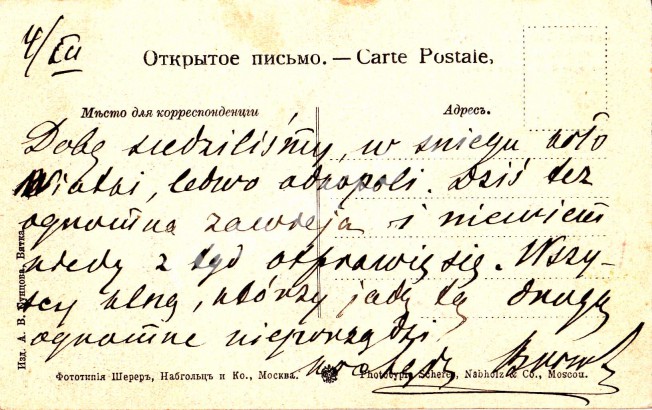 4/XII
Открытое письмо. — Carte Postale.
Мѣсто для корреспонденціи
Адресъ.
Dobę siedzieliśmy w śniegu koło
Wiatki, ledwo odkopali. Dziś też
ogromna zawieja i niewiem
kiedy z tąd otprawię się. Wszy-
scy klną, którzy jadą tą drogą
ogromne nieporządki.
Изд. А. В. Кунцова, Вятка.
Фототипія Шереръ, Набгольцъ и Ко., Москва.
Phototypie Scherer, Nabholz & Co., Moscou.